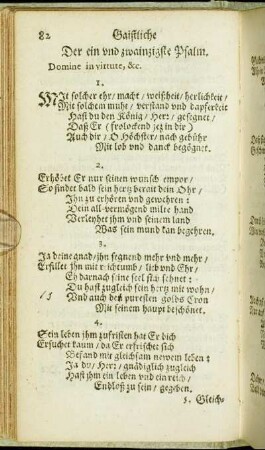 82 Gaistliche
Der ein vnd zwainzigste Psalm.
Domine in virtute, &c.
1.
Mit solcher ehr/ macht/ weißheit/ herlichkeit/
Mit solchem muht/ verstand vnd dapferkeit
Hast du den König/ Herr/ gesegnet/
Daß Er (frolockend jez in dir)
Auch dir/ O Höchster/ nach gebühr
Mit lob vnd danck begögnet.
2.
Erhöbet Er nur seinen wunsch empor/
So findet bald sein herz berait dein Ohr/
Ihn zu erhören vnd gewehren:
Dein all vermögend milte hand
Verleyhet ihm vnd seinem land
Was sein mund kan begehren.
3.
Ja deine gnad/ ihn segnend mehr vnd mehr/
Erfillet ihn mit richtumb/ lieb vnd Ehr/
Eh darnach seine seel sich sehnet:
Du hast zugleich sein herz mit wohn/
15 Vnd auch deß puresten golds Cron
Mit seinem haupt beschönet.
4.
Sein leben ihm zufristen hat Er dich
Ersuchet kaum/ da Er erfrischet sich
Befand mit gleichsam newem leben:
Ja du/ Herr/ gnädiglich zugleich
Hast ihm ein leben vnd ein reich/
Endloß zu sein/ gegeben.
5. Gleich-